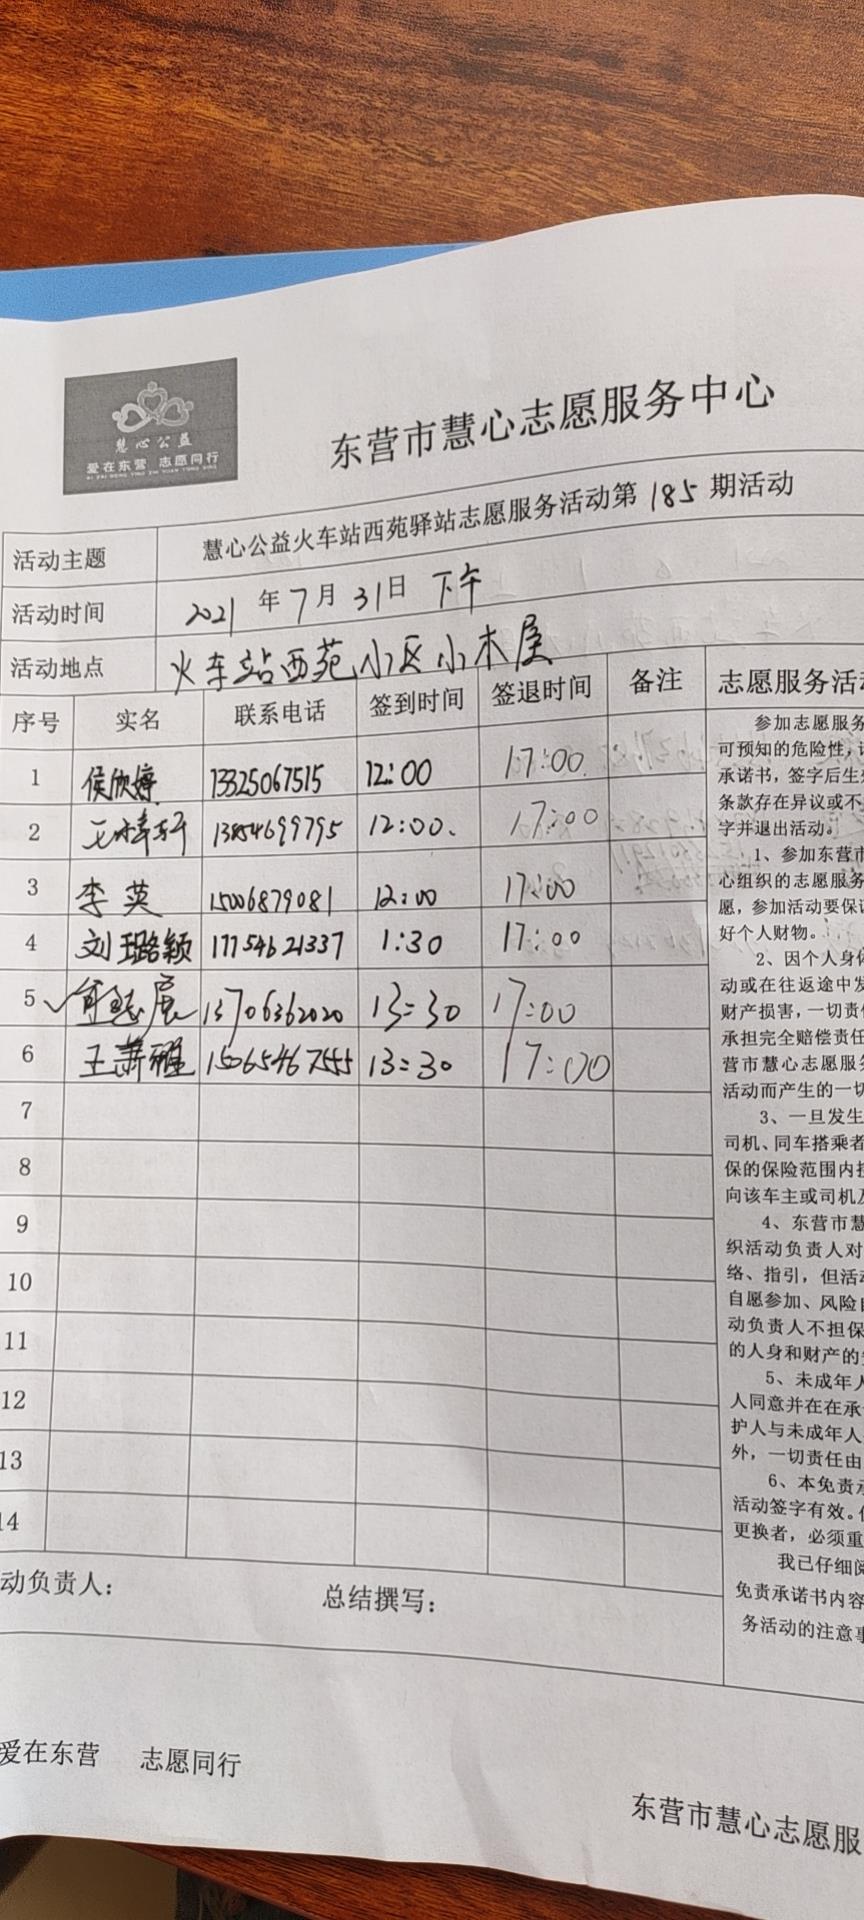 慧心公益
爱在东营 志愿同行
AI ZAI DONG YING ZHI YUAN TONG XING
东营市慧心志愿服务中心
活动主题 慧心公益火车站西苑驿站志愿服务活动第185期活动
活动时间 2021年7月31日 下午
活动地点 火车站西苑小区小木屋
序号 实名 联系电话 签到时间 签退时间 备注
1 侯欣婷 13325067515 12:00 17:00
2 王梓轩 13854699795 12:00. 17:00
3 李英 15006879081 12:00 17:00
4 刘璐颖 17754621337 1:30 17:00
5 13706362020 13:30 17:00
6 王萧雅 15065467555 13:30 17:00
7
8
9
10
11
12
13
14
动负责人: 总结撰写:
志愿服务活动
参加志愿服务
可预知的危险性,
承诺书,签字后生
条款存在异议或不
字并退出活动。
1、参加东营市
心组织的志愿服务
愿,参加活动要保
好个人财物。
2、因个人身体
动或在往返途中发
财产损害,一切责任
承担完全赔偿责任
营市慧心志愿服务
活动而产生的一切
3、一旦发生
司机、同车搭乘者
保的保险范围内
向该车主或司机及
4、东营市慧
织活动负责人对
络、指引,但活动
自愿参加、风险自
动负责人不担保
的人身和财产的
5、未成年人
人同意并在在承
护人与未成年人
外,一切责任由
6、本免责承
活动签字有效。
更换者,必须重
我已仔细阅
免责承诺书内容
务活动的注意事
爱在东营 志愿同行
东营市慧心志愿服